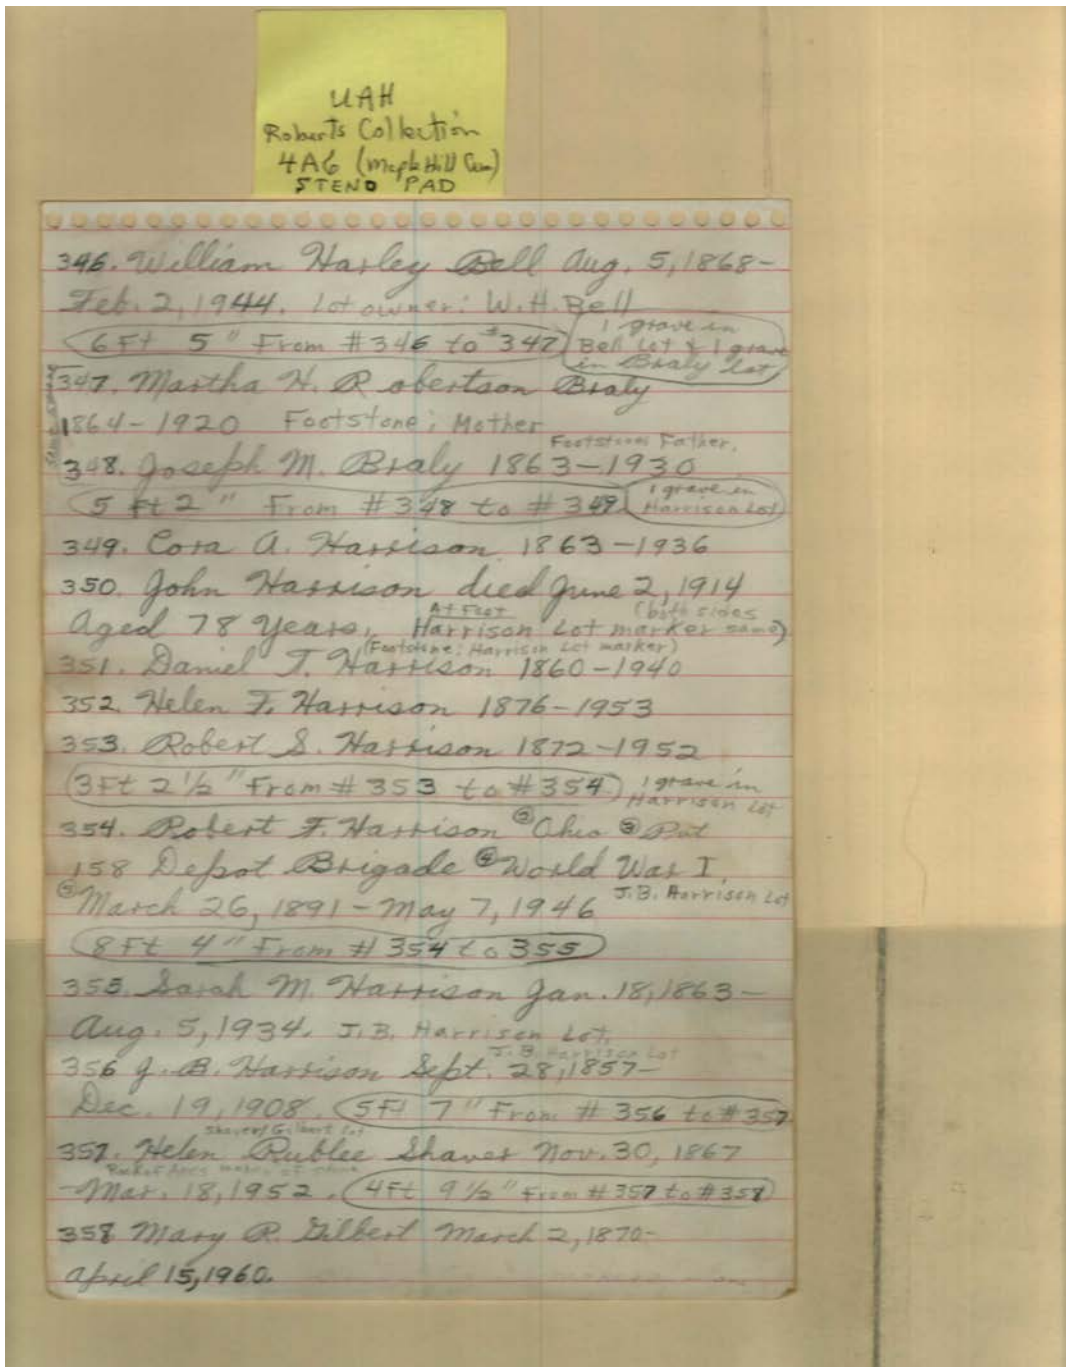 UAH
Roberts Collection
4A6 (Maple Hill Cem)
STENO PAD
346. William Harley Bell Aug. 5, 1868-
Feb. 2, 1944. Lot owner: W.H. Bell
6 Ft 5" From #346 to #347
1 grave in
Bell Lot & 1 grave
in Braly lot
347. Martha H. Robertson Braly
1864-1920 Footstone: Mother
Footstone: Father.
348. Joseph M. Braly 1863-1930
5 ft 2" From #348 to #349
1 grave in
Harrison Lot
349. Cora A. Harrison 1863-1936
350. John Harrison died June 2, 1914
At Foot (both sides
Aged 78 years. Harrison Lot marker same)
(Footstone: Harrison Lot marker)
351. Daniel T. Harrison 1860-1940
352. Helen F. Harrison 1876-1953
353. Robert S. Harrison 1872-1952
3 Ft 2 1/2" From #353 to #354
1 grave in
Harrison Lot
354. Robert F. Harrison ② Ohio ③ Pvt
158 Depot Brigade ④ World War I
J.B. Harrison Lot
⑤ March 26, 1891-May 7, 1946
8 Ft 4" From #354 to 355
355. Sarah M. Harrison Jan. 18, 1863-
Aug. 5, 1934. J.B. Harrison Lot.
J.B. Harrison Lot
356 J. B. Harrison Sept. 28, 1857-
Dec. 19, 1908. 5 Ft 7" From #356 to #357
Shaver/Gilbert lot
357. Helen Rublee Shaver Nov. 30, 1867
-Mar. 18, 1952. 4 Ft 9 1/2" From #357 to #358
358 Mary R. Gilbert March 2, 1870-
April 15, 1960.